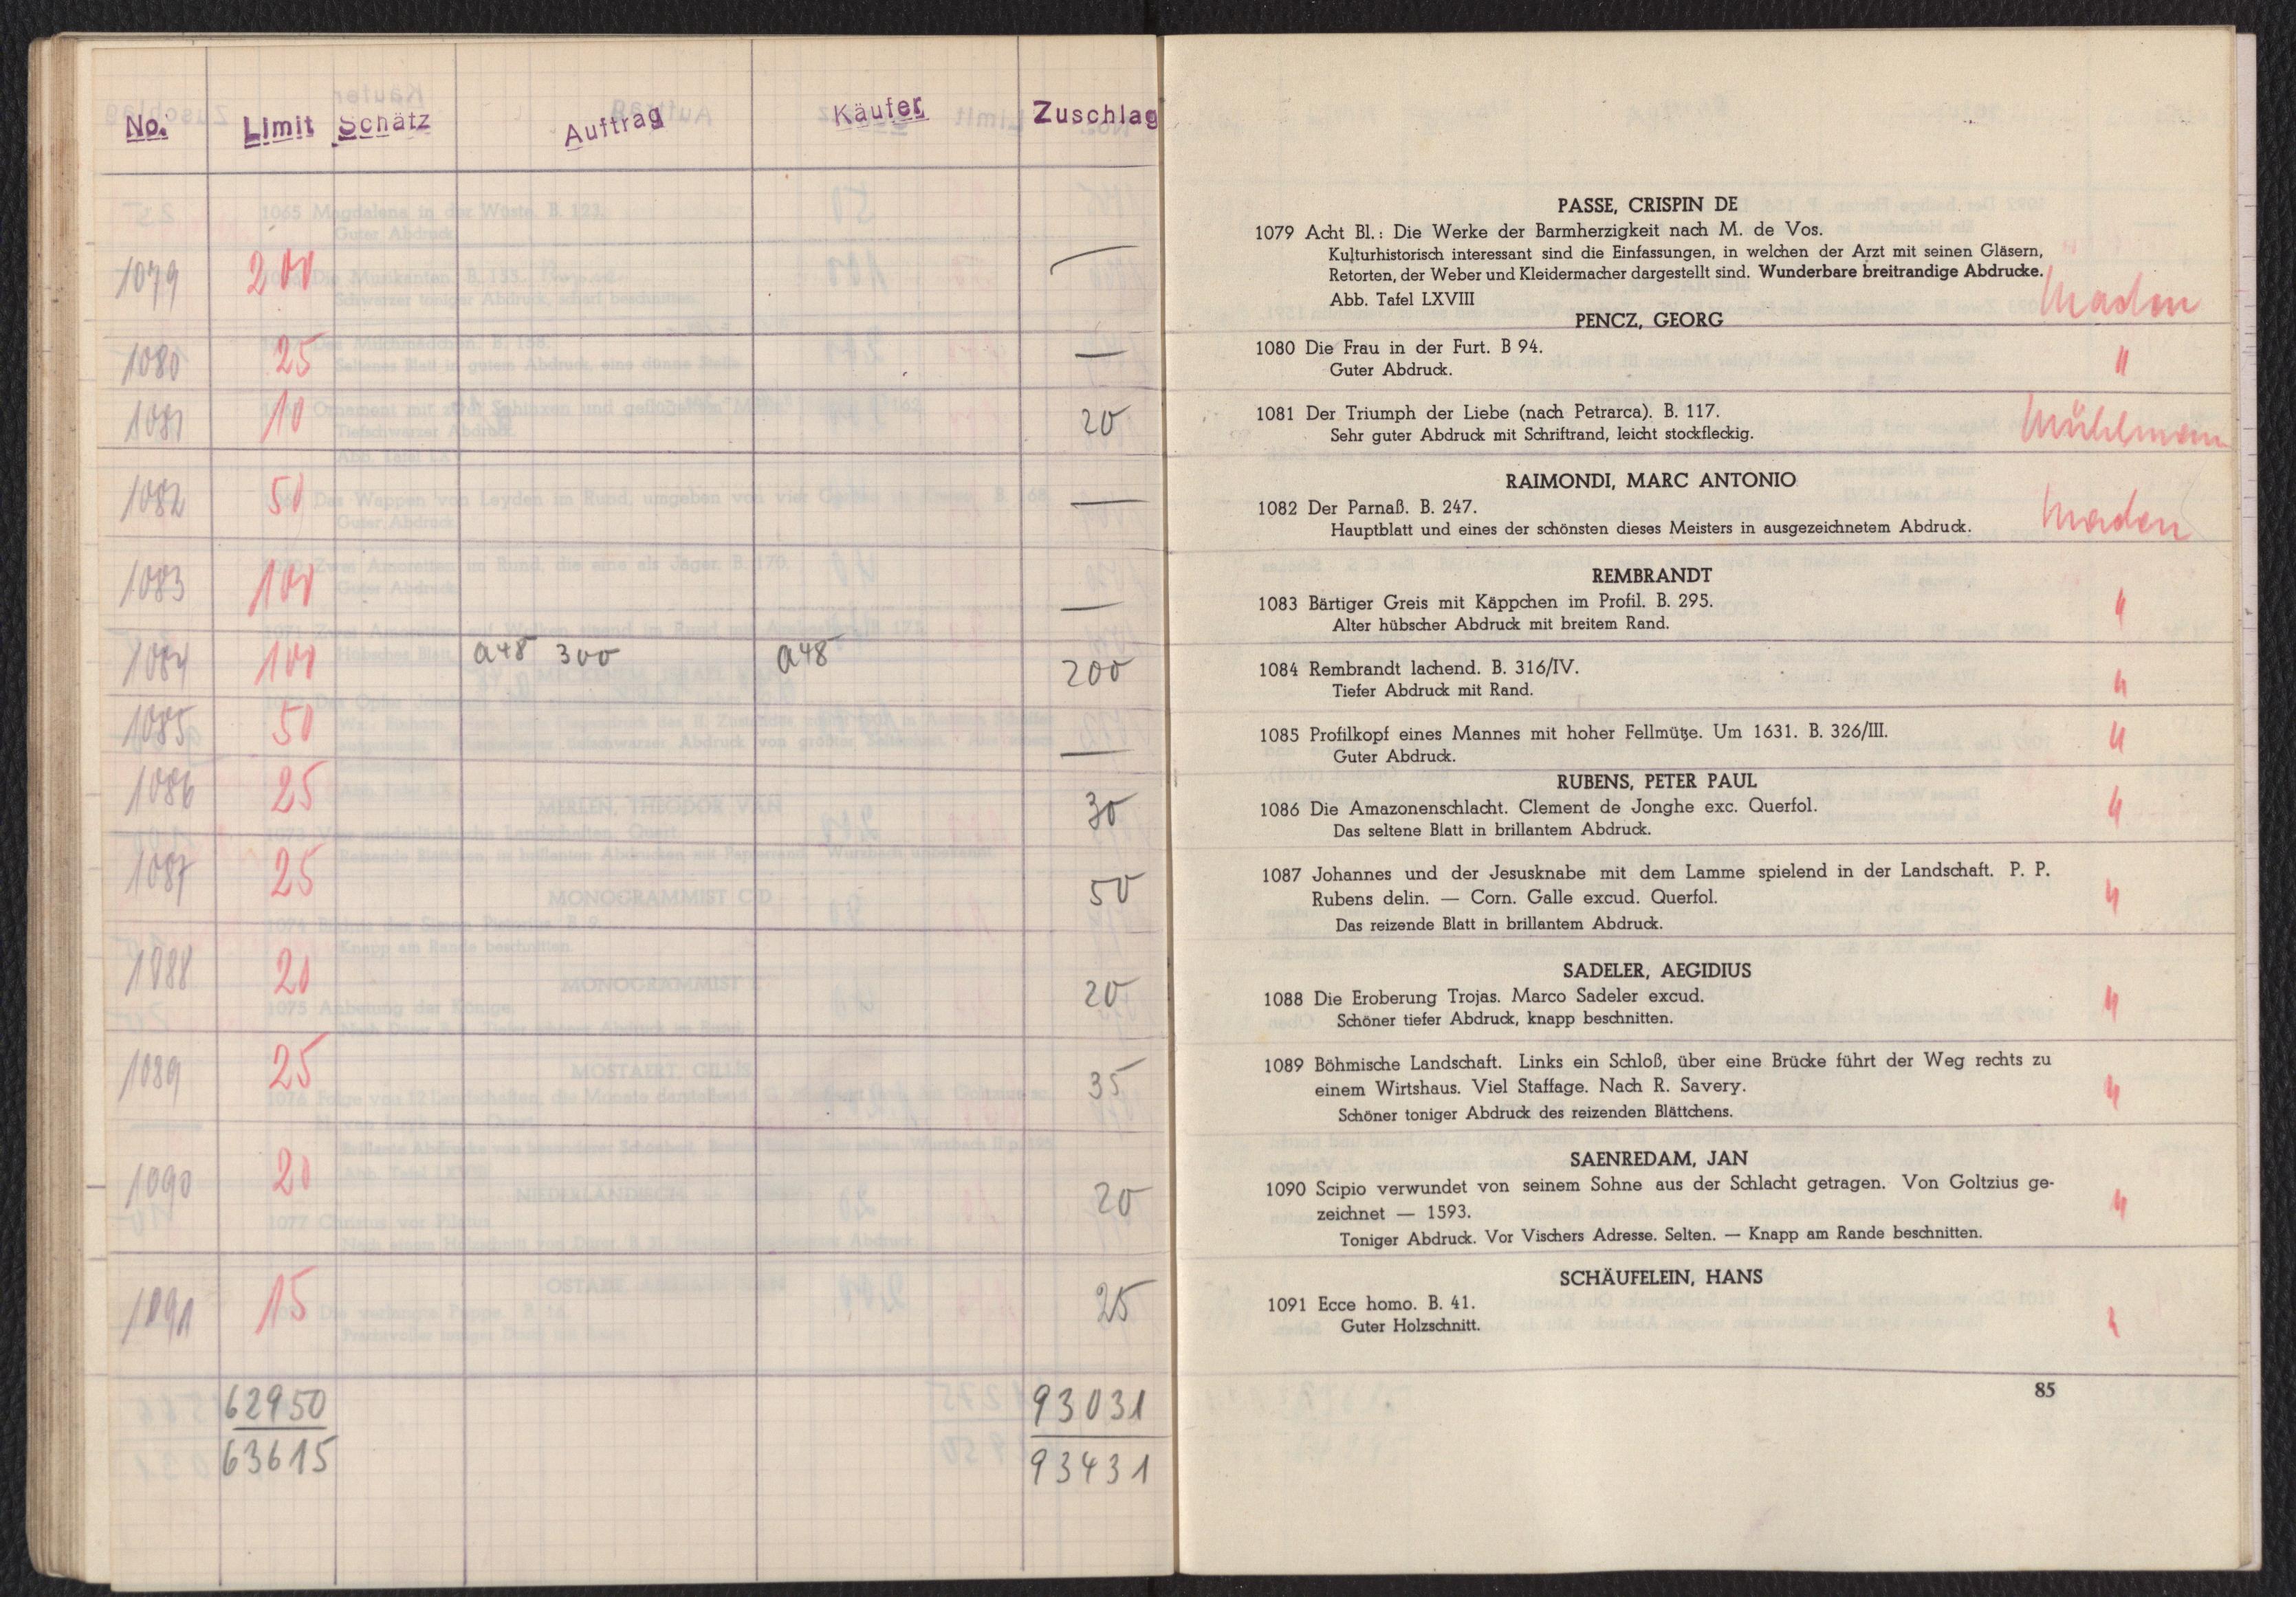 No. Limit Schätz Auftrag Käufer Zuschlag
1079 200 —
1080 25 —
1081 10 20
1082 50 —
1083 100 —
1084 100 a48 300 a48 200
1085 50 —
1086 25 30
1087 25 50
1088 20 20
1089 25 35
1090 20 20
1091 15 25
62950 93031
63615 93431
PASSE, CRISPIN DE
1079 Acht Bl.: Die Werke der Barmherzigkeit nach M. de Vos.
Kulturhistorisch interessant sind die Einfassungen, in welchen der Arzt mit seinen Gläsern,
Retorten, der Weber und Kleidermacher dargestellt sind. Wunderbare breitrandige Abdrucke.
Abb. Tafel LXVIII Maden
PENCZ, GEORG
1080 Die Frau in der Furt. B 94. "
Guter Abdruck.
1081 Der Triumph der Liebe (nach Petrarca). B. 117. Mühlmann
Sehr guter Abdruck mit Schriftrand, leicht stockfleckig.
RAIMONDI, MARC ANTONIO
1082 Der Parnaß. B. 247. Maden
Hauptblatt und eines der schönsten dieses Meisters in ausgezeichnetem Abdruck.
REMBRANDT
1083 Bärtiger Greis mit Käppchen im Profil. B. 295. "
Alter hübscher Abdruck mit breitem Rand.
1084 Rembrandt lachend. B. 316/IV. "
Tiefer Abdruck mit Rand.
1085 Profilkopf eines Mannes mit hoher Fellmütze. Um 1631. B. 326/III. "
Guter Abdruck.
RUBENS, PETER PAUL
1086 Die Amazonenschlacht. Clement de Jonghe exc. Querfol. "
Das seltene Blatt in brillantem Abdruck.
1087 Johannes und der Jesusknabe mit dem Lamme spielend in der Landschaft. P. P.
Rubens delin. — Corn. Galle excud. Querfol. "
Das reizende Blatt in brillantem Abdruck.
SADELER, AEGIDIUS
1088 Die Eroberung Trojas. Marco Sadeler excud. "
Schöner tiefer Abdruck, knapp beschnitten.
1089 Böhmische Landschaft. Links ein Schloß, über eine Brücke führt der Weg rechts zu
einem Wirtshaus. Viel Staffage. Nach R. Savery. "
Schöner toniger Abdruck des reizenden Blättchens.
SAENREDAM, JAN
1090 Scipio verwundet von seinem Sohne aus der Schlacht getragen. Von Goltzius ge-
zeichnet — 1593. "
Toniger Abdruck. Vor Vischers Adresse. Selten. — Knapp am Rande beschnitten.
SCHÄUFELEIN, HANS
1091 Ecce homo. B. 41.
Guter Holzschnitt. "
85